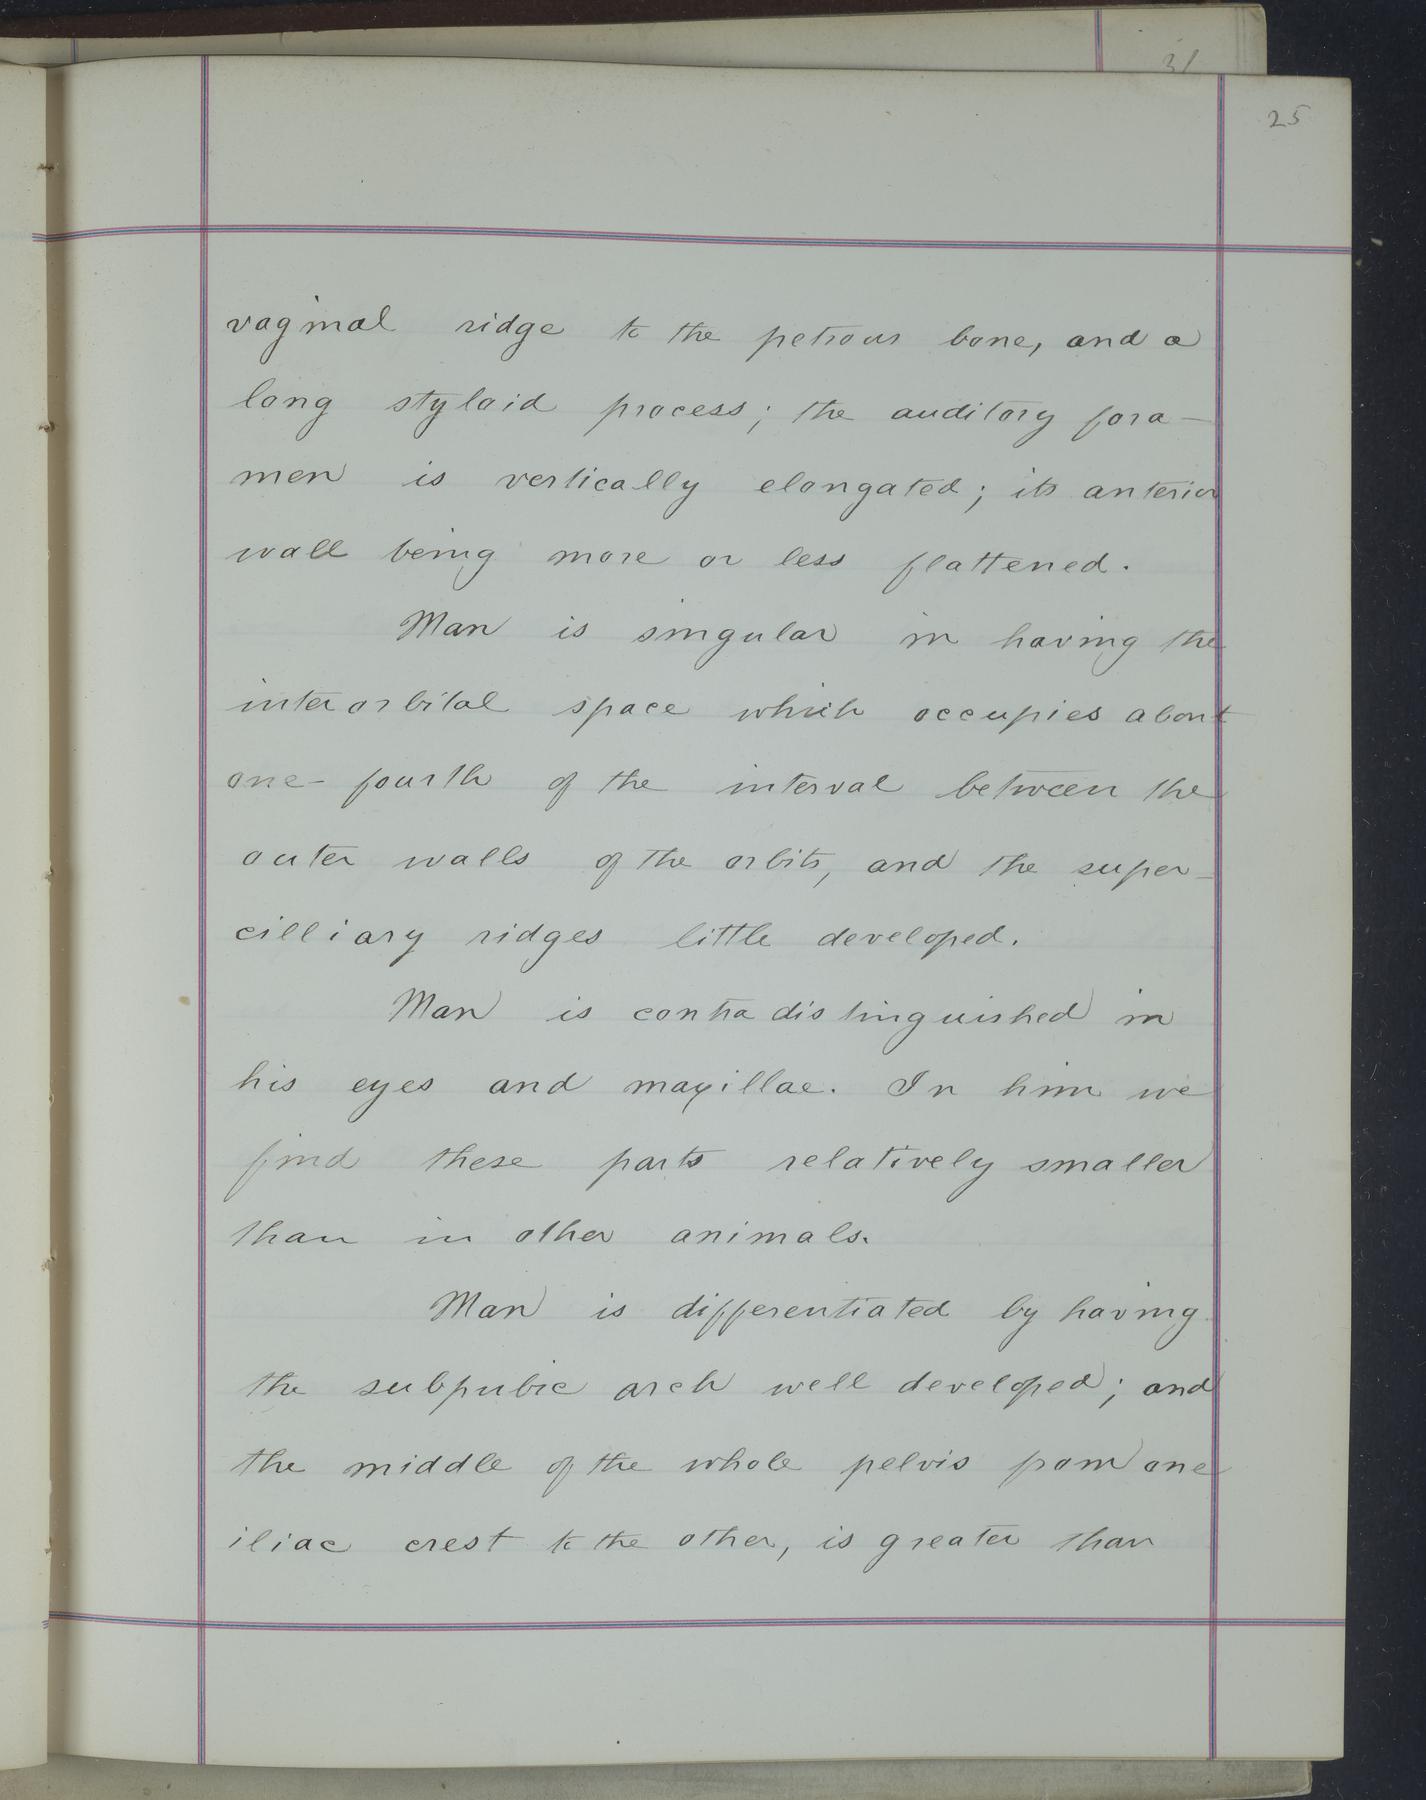 31
25
vaginal ridge to the petrous bone, and a
long styloid process; the auditory fora-
men is vertically elongated; its anterior
wall being more or less flattened.
Man is singular in having the
interorbital space which occupies about
one-fourth of the interval between the
outer walls of the orbits, and the super-
cilliary ridges little developed.
Man is contradistinguished in
his eyes and maxillae. In him we
find these parts relatively smaller
than in other animals.
Man is differentiated by having
the subpubic arch well developed; and
the middle of the whole pelvis from one
iliac crest to the other, is greater than